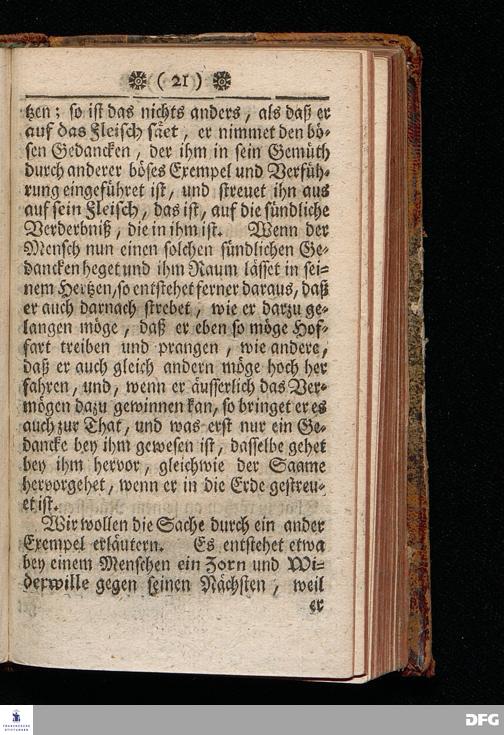 ( 21 )
tzen; so ist das nichts anders, als daß er
auf das Fleisch säet, er nimmet den bö-
sen Gedancken, der ihm in sein Gemüth
durch anderer böses Exempel und Verfüh-
rung eingeführet ist, und streuet ihn aus
auf sein Fleisch, das ist, auf die sündliche
Verderbniß, die in ihm ist. Wenn der
Mensch nun einen solchen sündlichen Ge-
dancken heget und ihm Raum lässet in sei-
nem Hertzen, so entstehet ferner daraus, daß
er auch darnach strebet, wie er darzu ge-
langen möge, daß er eben so möge Hof-
fart treiben und prangen, wie andere,
daß er auch gleich andern möge hoch her
fahren, und, wenn er äusserlich das Ver-
mögen dazu gewinnen kan, so bringet er es
auch zur That, und was erst nur ein Ge-
dancke bey ihm gewesen ist, dasselbe gehet
bey ihm hervor, gleichwie der Saame
hervorgehet, wenn er in die Erde gestreu-
et ist.
Wir wollen die Sache durch ein ander
Exempel erläutern. Es entstehet etwa
bey einem Menschen ein Zorn und Wi-
derwille gegen seinen Nächsten, weil
er
FRANCKESCHE
STIFTUNGEN
DFG